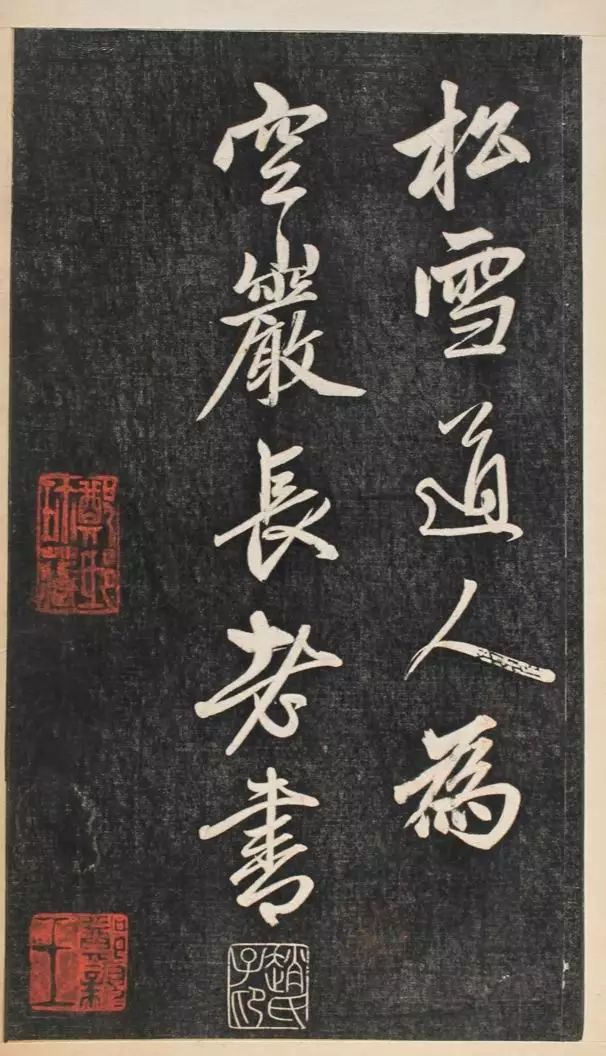 松雪道人為
空巖長老書
趙氏子昂